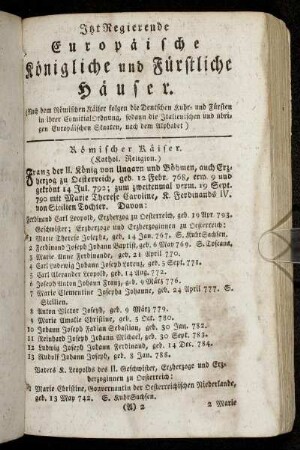 Itzt Regierende
Europäische
Königliche und Fürstliche
Häuser.
(Nach dem Römischen Kaiser folgen die Deutschen Kuhr- und Fürsten
in ihrer Comitialordnung, sodann die Italienischen und übri-
gen Europäischen Staaten, nach dem Alphabet)
Römischer Kaiser.
(Kathol. Religion.)
Franz der II. König von Ungarn und Böhmen, auch Erz-
herzog zu Oesterreich, geb. 12 Febr. 768, erw. 9 und
gekrönt 14 Jul. 792; zum zweitenmal verm. 19 Sept.
790 mit Marie Therese Caroline, K. Ferdinands IV.
von Sicilien Tochter. Davon:
Ferdinand Carl Leopold, Erzherzog zu Oesterreich, geb. 19 Apr. 793.
Geschwister; Erzherzoge und Erzherzoginnen zu Oesterreich:
1 Marie Therese Josephe, geb. 14 Jan. 767. S. KuhrSachsen.
2 Ferdinand Joseph Johann Baptist, geb. 6 May 769. S. Toscana.
3 Marie Anne Ferdinande, geb. 21 April 770.
4 Carl Ludwig Johann Joseph Lorenz, geb. 5 Sept. 771.
5 Carl Alexander Leopold, geb. 14 Aug. 772.
6 Joseph Anton Johann Franz, geb. 9 März 776.
7 Marie Clementine Josephe Johanne, geb. 24 April 777. S.
Sicilien.
8 Anton Victor Joseph, geb. 9 März 779.
9 Marie Amalie Christine, geb. 5 Oct. 780.
10 Johann Joseph Fabian Sebastian, geb. 30 Jan. 782.
11 Reinhard Joseph Johann Michael, geb. 30 Sept. 783.
12 Ludwig Joseph Johann Ferdinand, geb. 14 Dec. 784.
13 Rudolf Joseph Johann, geb. 8 Jan. 788.
Vaters K. Leopolds des II. Geschwister, Erzherzoge und Erz-
herzoginnen zu Oesterreich:
Marie Christine, Gouvernantin der Oesterreichischen Niederlande,
geb. 13 May 742. S. KuhrSachsen.
(A) 2 2 Marie